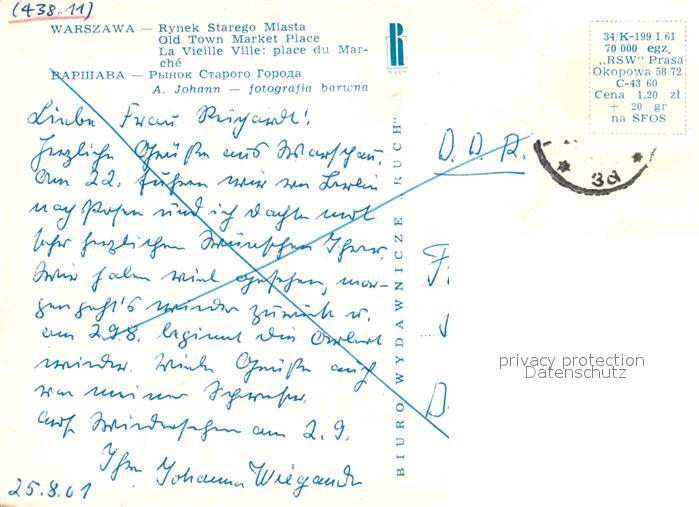 (438.11)
WARSZAWA — Rynek Starego Miasta
Old Town Market Place
La Vieille Ville: place du Mar-
ché
ВАРШАВА — Рынок Старого Города
A. Johann — fotografia barwna
RUCH
34/K-199/I.61
70 000 egz.
„RSW" Prasa
Okopowa 58 72
C-43 60
Cena 1,20 zł
+ 20 gr
na SFOS
Liebe Frau
Herzliche Grüße aus Warschau.
Am 22. fuhren wir von Berlin
nach Posen und ich dachte mit
sehr herzlichen Wünschen Ihrer.
Wir haben viel gesehen, mor-
gen geht's wieder zurück u.
am 29.8. beginnt die Arbeit
wieder. Viele Grüße auch
von meiner Schwester.
Auf Wiedersehen am 2.9.
Ihre Johanna Wiegand
25.8.61
BIURO WYDAWNICZE „RUCH"
D.D.R.
3d
privacy protection
Datenschutz